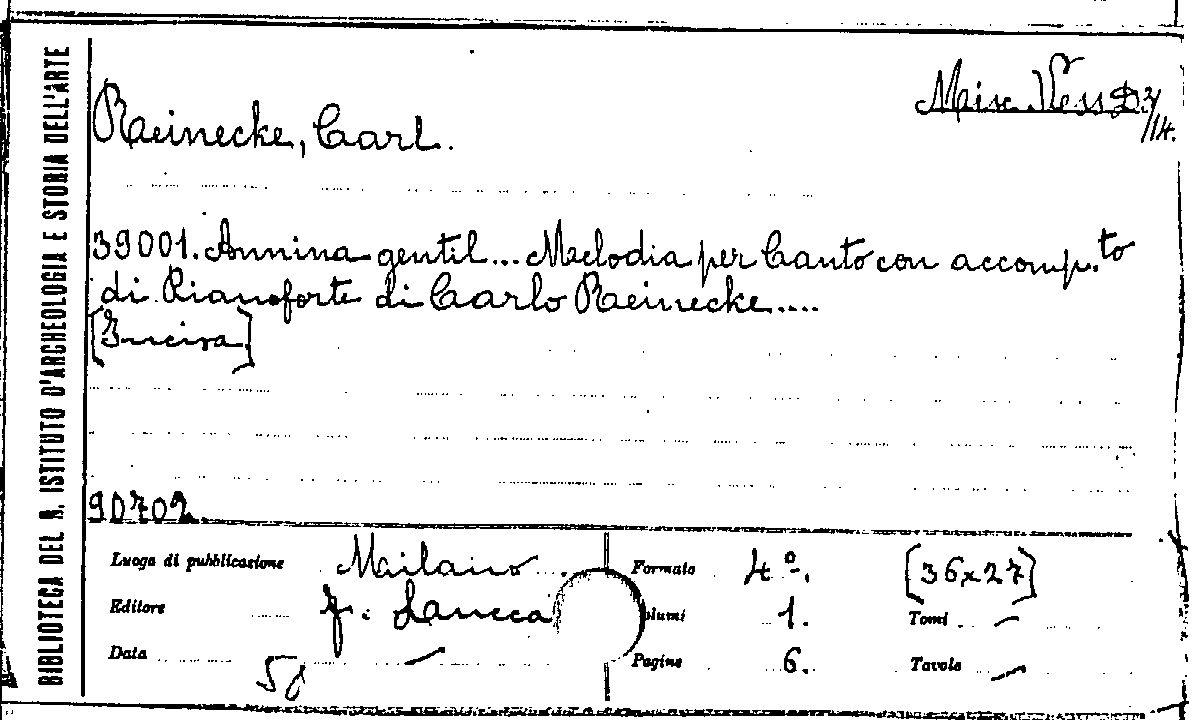 BIBLIOTECA DEL R. ISTITUTO D'ARCHEOLOGIA E STORIA DELL'ARTE
Misc. Vess. D3/14.
Reinecke, Carl.
39001. Annina gentil... Melodia per Canto con accomp.to
di Pianoforte di Carlo Reinecke....
[Incisa]
90702
Luogo di pubblicazione Mailano Formato 4º. [36x27]
Editore F. Lucca Volumi 1. Tomi —
Data — Pagine 6. Tavole —